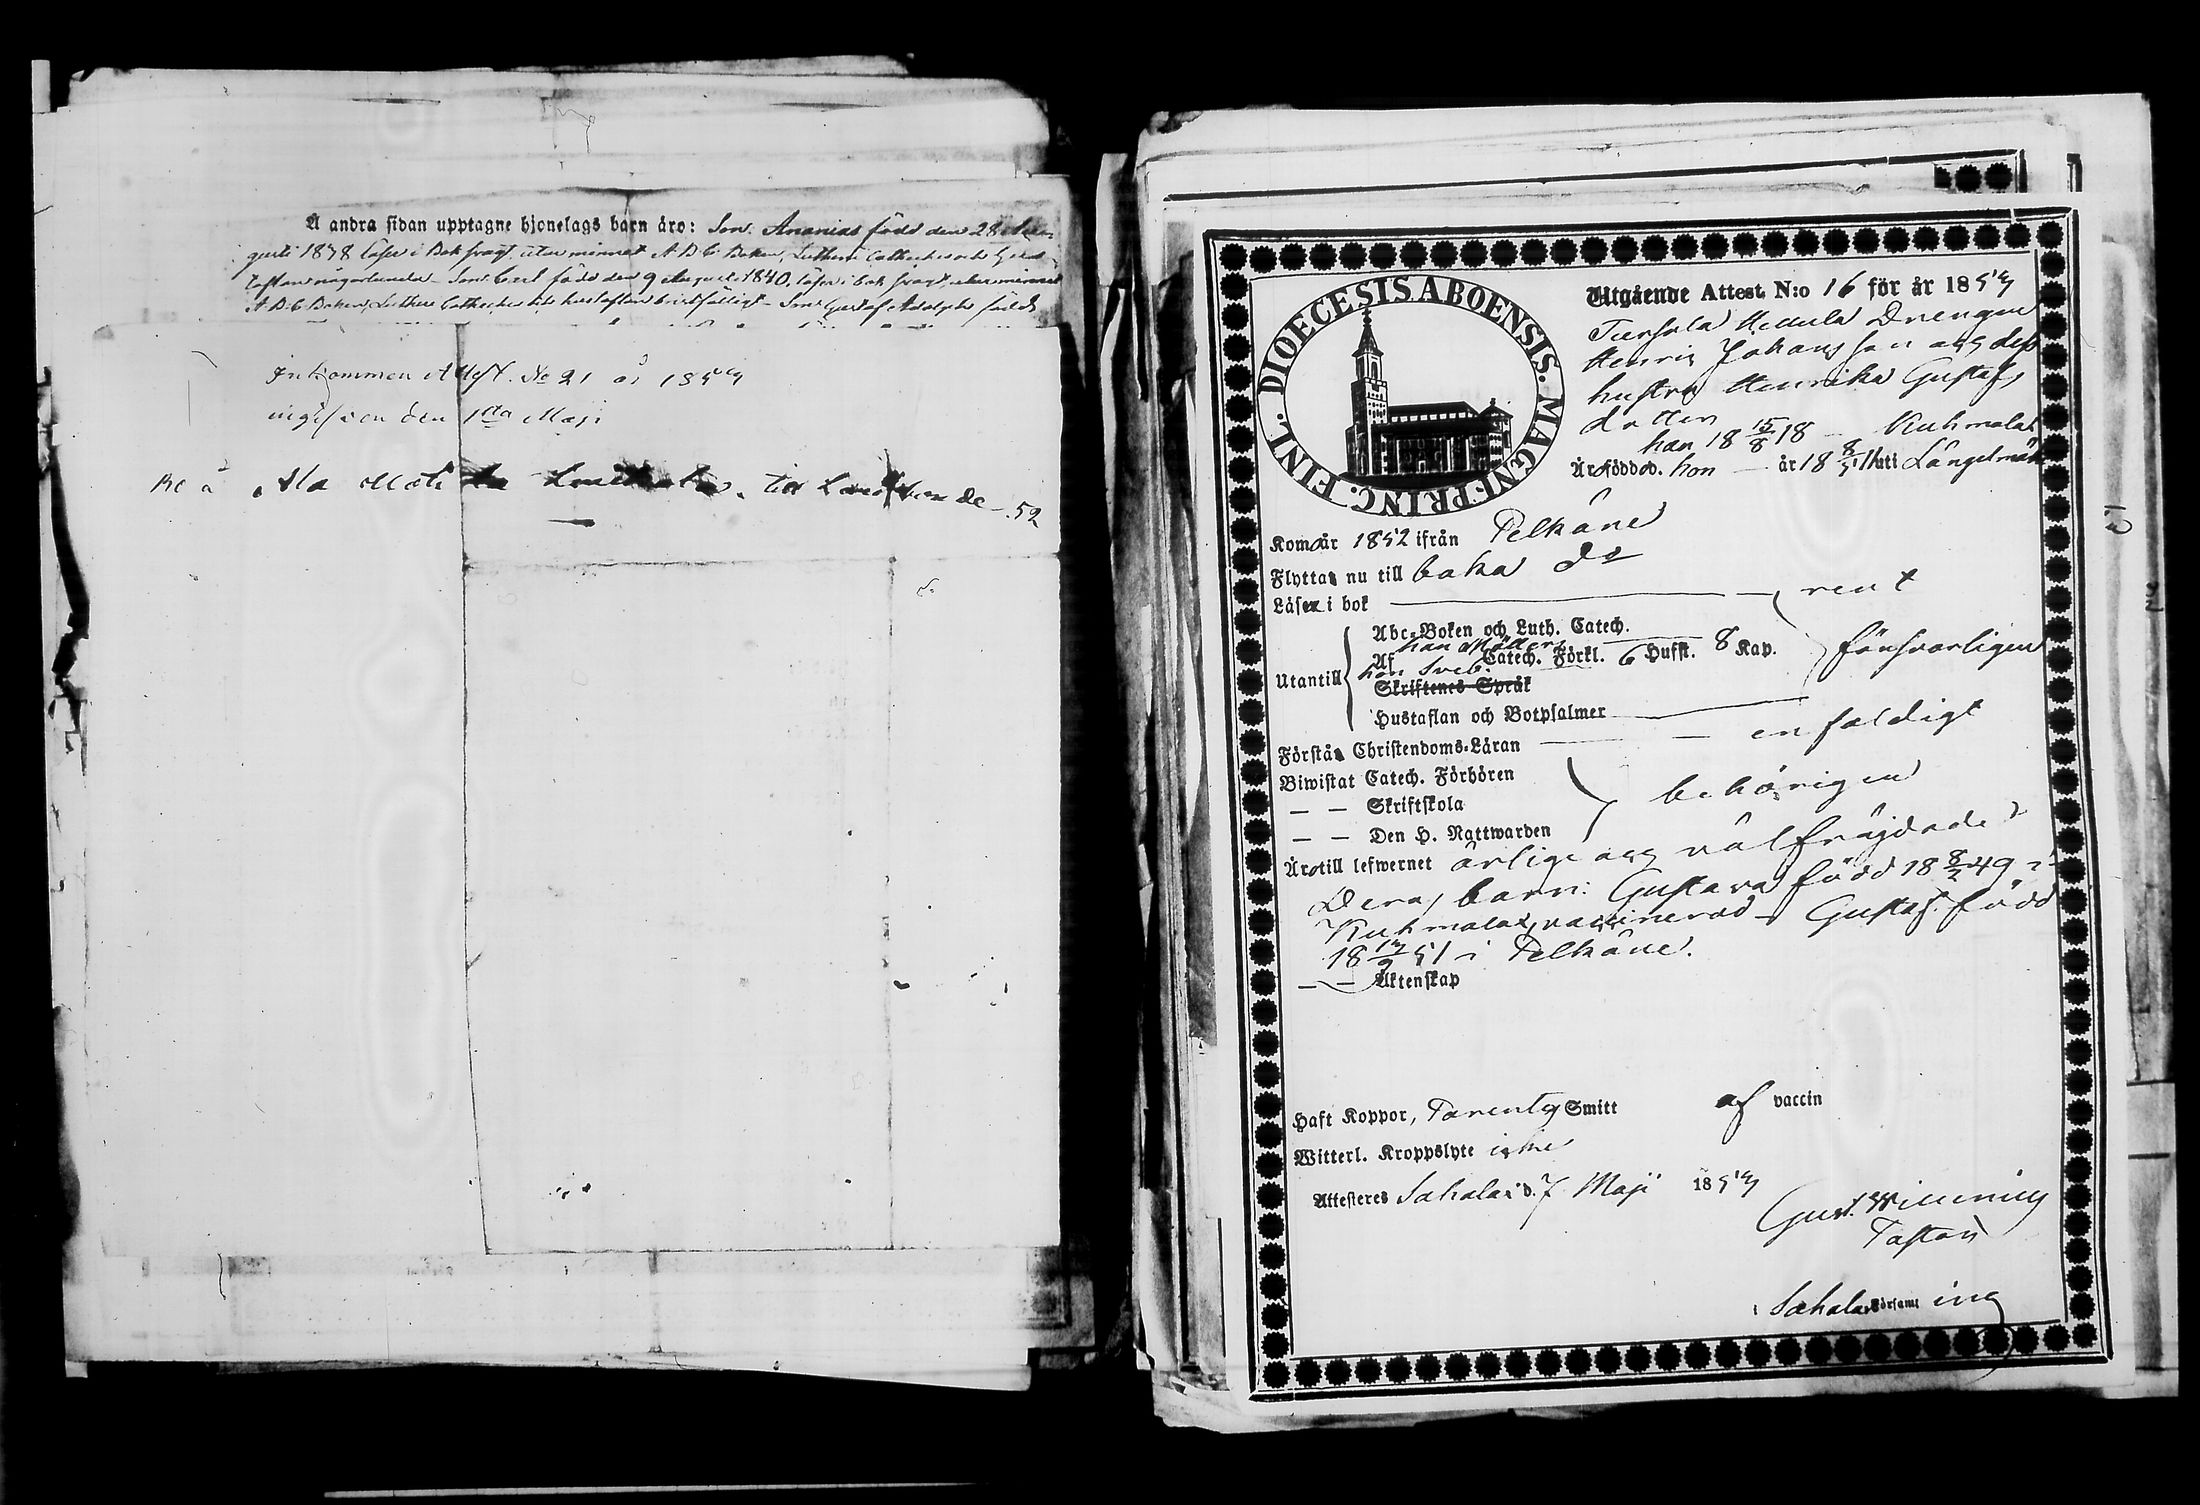 A andra sidan upptagne hjonelags barn äro: Son Ananias född den 28 Au-
gusti 1838 läser i Bok svagt, utan minnet A B C Boken, Lutheri Catheches och Hus-
taflan någorlunda - Son Carl född den 9 Augusti 1840, läser i bok svagt, utan minnet
A.B.C Boken, Lutheri Catheches och hustaflan bristfälligt - Son Gustaf Adolph född
Inkommen Attest. No 21 år 1853
ingifven den 1sta Maji
till
52
DIOECESIS ABOENSIS. MAGNI. PRINC. FINL.
Utgående Attest N:o 16 för år 1853
Drengen
Henric Johansson och dess
hustru Henrika Gustafs
dotter
han 18 15/8 18 Kuhmalax
Äro födde. hon år 18 uti Längelmäki
Komo år 1852 ifrån Pelkäne
Flytta nu till baka do
Läsa i bok rent
Abc-Boken och Luth. Catech.
han Möllers
Af Catech. Förkl. 6 Hufst. 8 Kap. försvarligen
hon Sveb.
Utantill
Skriftenes Språk
Hustaflan och Botpsalmer
Förstå Christendoms-Läran enfaldigt
Biwistat Catech. Förhören
— — Skriftskola behörigen
— — Den H. Nattwarden
Äro till lefwernet ärlige och välfräjdade
Deras barn: Gustava född 18 8/2 49 i
Kuhmalax, vaccinerad - Gustaf född
18 51 i Pelkäne.
— — Äktenskap
Haft Koppor, Smitt af vaccin
Witterl. Kroppslyte icke
Attesteres Sahalax d. 7 Maji 1853
Gust. Winning
Pastor
i Sahalax Församling